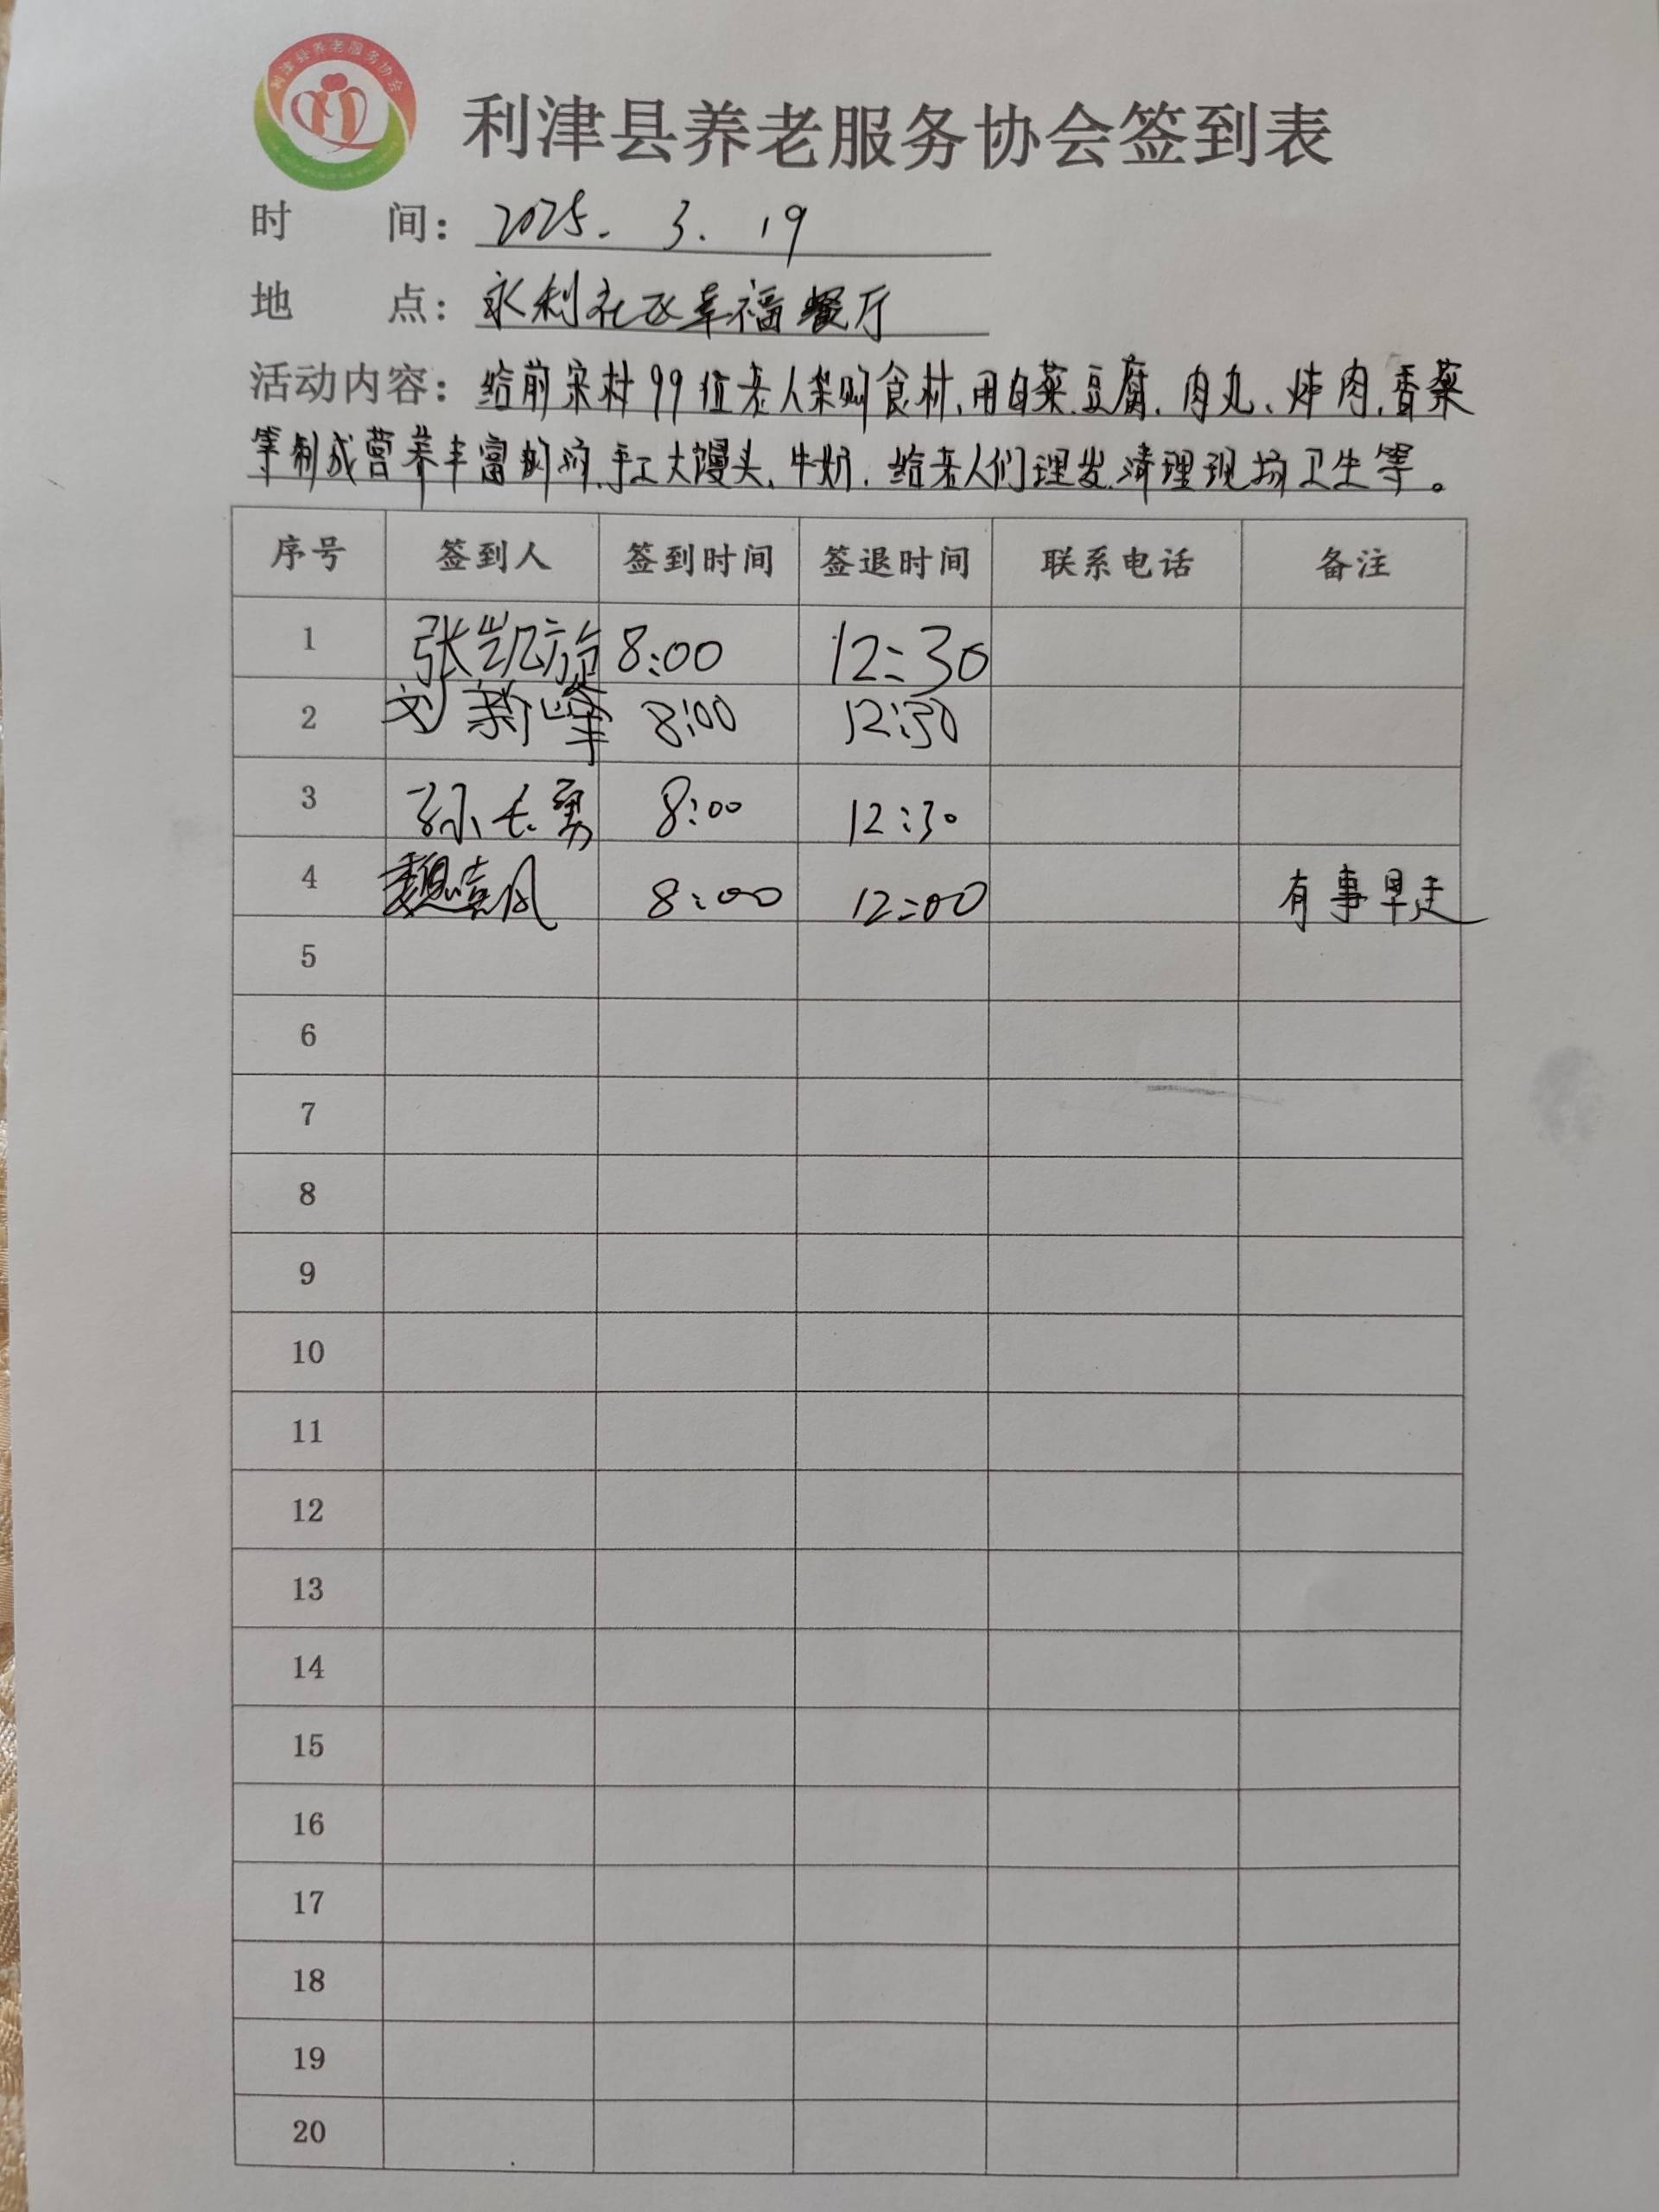 利津县养老服务协会
利津县养老服务协会签到表
时 间: 2025. 3. 19
地 点: 永利社区幸福餐厅
活动内容: 给前宋村99位老人采购食材、用白菜、豆腐、肉丸、炸肉、香菜
等制成营养丰富的汤、手工大馒头、牛奶、给老人们理发、清理现场卫生等。
序号 签到人 签到时间 签退时间 联系电话 备注
1 张凯旋 8:00 12:30
2 刘新峰 8:00 12:30
3 孙长勇 8:00 12:30
4 魏喜风 8:00 12:00 有事早走
5
6
7
8
9
10
11
12
13
14
15
16
17
18
19
20